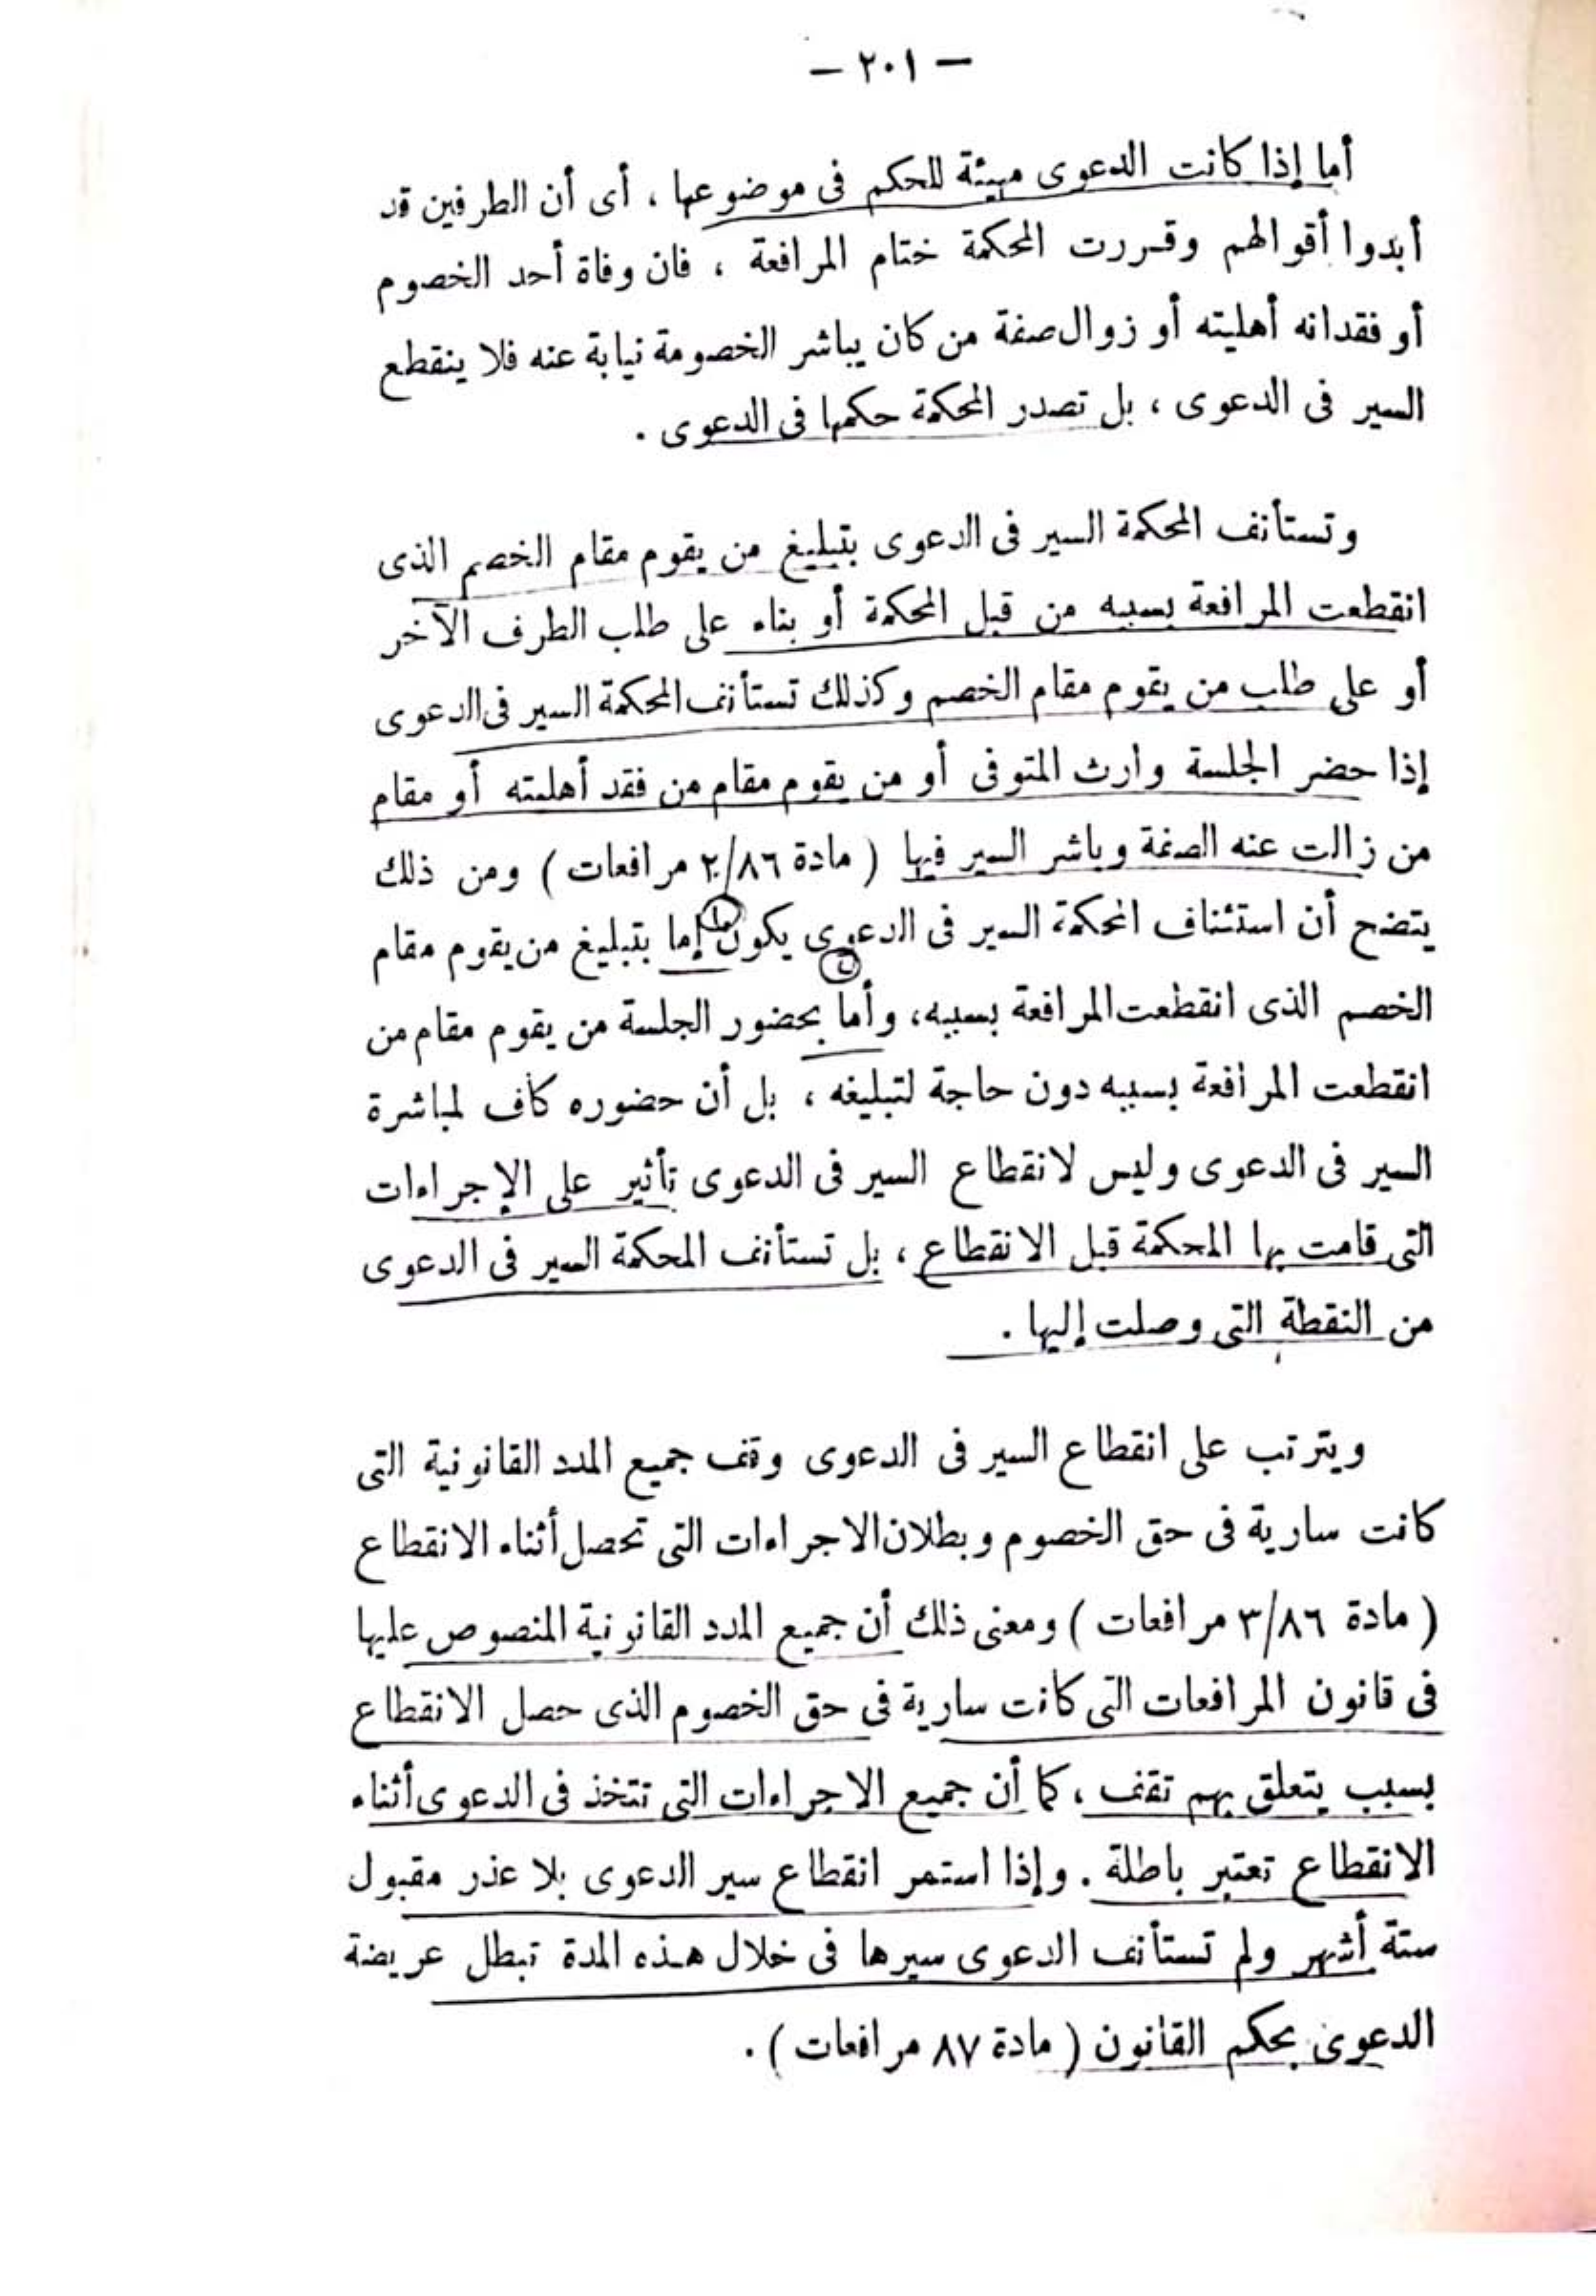 — ٢٠١ —
أما إذا كانت الدعوى مهيئة للحكم فى موضوعها ، أى أن الطرفين قد
أبدوا أقوالهم وقررت المحكمة ختام المرافعة ، فان وفاة أحد الخصوم
أو فقدانه أهليته أو زوال صفة من كان يباشر الخصومة نيابة عنه فلا ينقطع
السير فى الدعوى ، بل تصدر المحكمة حكمها فى الدعوى .
وتستأنف المحكمة السير فى الدعوى بتبليغ من يقوم مقام الخصم الذى
انقطعت المرافعة بسببه من قبل المحكمة أو بناء على طلب الطرف الآخر
أو على طلب من يقوم مقام الخصم وكذلك تستأنف المحكمة السير فى الدعوى
إذا حضر الجلسة وارث المتوفى أو من يقوم مقام من فقد أهليته أو مقام
من زالت عنه الصفة وباشر السير فيها ( مادة ٢/٨٦ مرافعات ) ومن ذلك
يتضح أن استئناف المحكمة السير فى الدعوى يكون إما بتبليغ من يقوم مقام
الخصم الذى انقطعت المرافعة بسببه، وأما بحضور الجلسة من يقوم مقام من
انقطعت المرافعة بسببه دون حاجة لتبليغه ، بل أن حضوره كاف لمباشرة
السير فى الدعوى وليس لانقطاع السير فى الدعوى تأثير على الإجراءات
التى قامت بها المحكمة قبل الانقطاع ، بل تستأنف المحكمة السير فى الدعوى
من النقطة التى وصلت إليها .
ويترتب على انقطاع السير فى الدعوى وقف جميع المدد القانونية التى
كانت سارية فى حق الخصوم وبطلان الاجراءات التى تحصل أثناء الانقطاع
( مادة ٣/٨٦ مرافعات ) ومعنى ذلك أن جميع المدد القانونية المنصوص عليها
فى قانون المرافعات التى كانت سارية فى حق الخصوم الذى حصل الانقطاع
بسبب يتعلق بهم تقف ، كما أن جميع الاجراءات التى تتخذ فى الدعوى أثناء
الانقطاع تعتبر باطلة . وإذا استمر انقطاع سير الدعوى بلا عذر مقبول
ستة أشهر ولم تستأنف الدعوى سيرها فى خلال هذه المدة تبطل عريضة
الدعوى بحكم القانون ( مادة ٨٧ مرافعات ) .